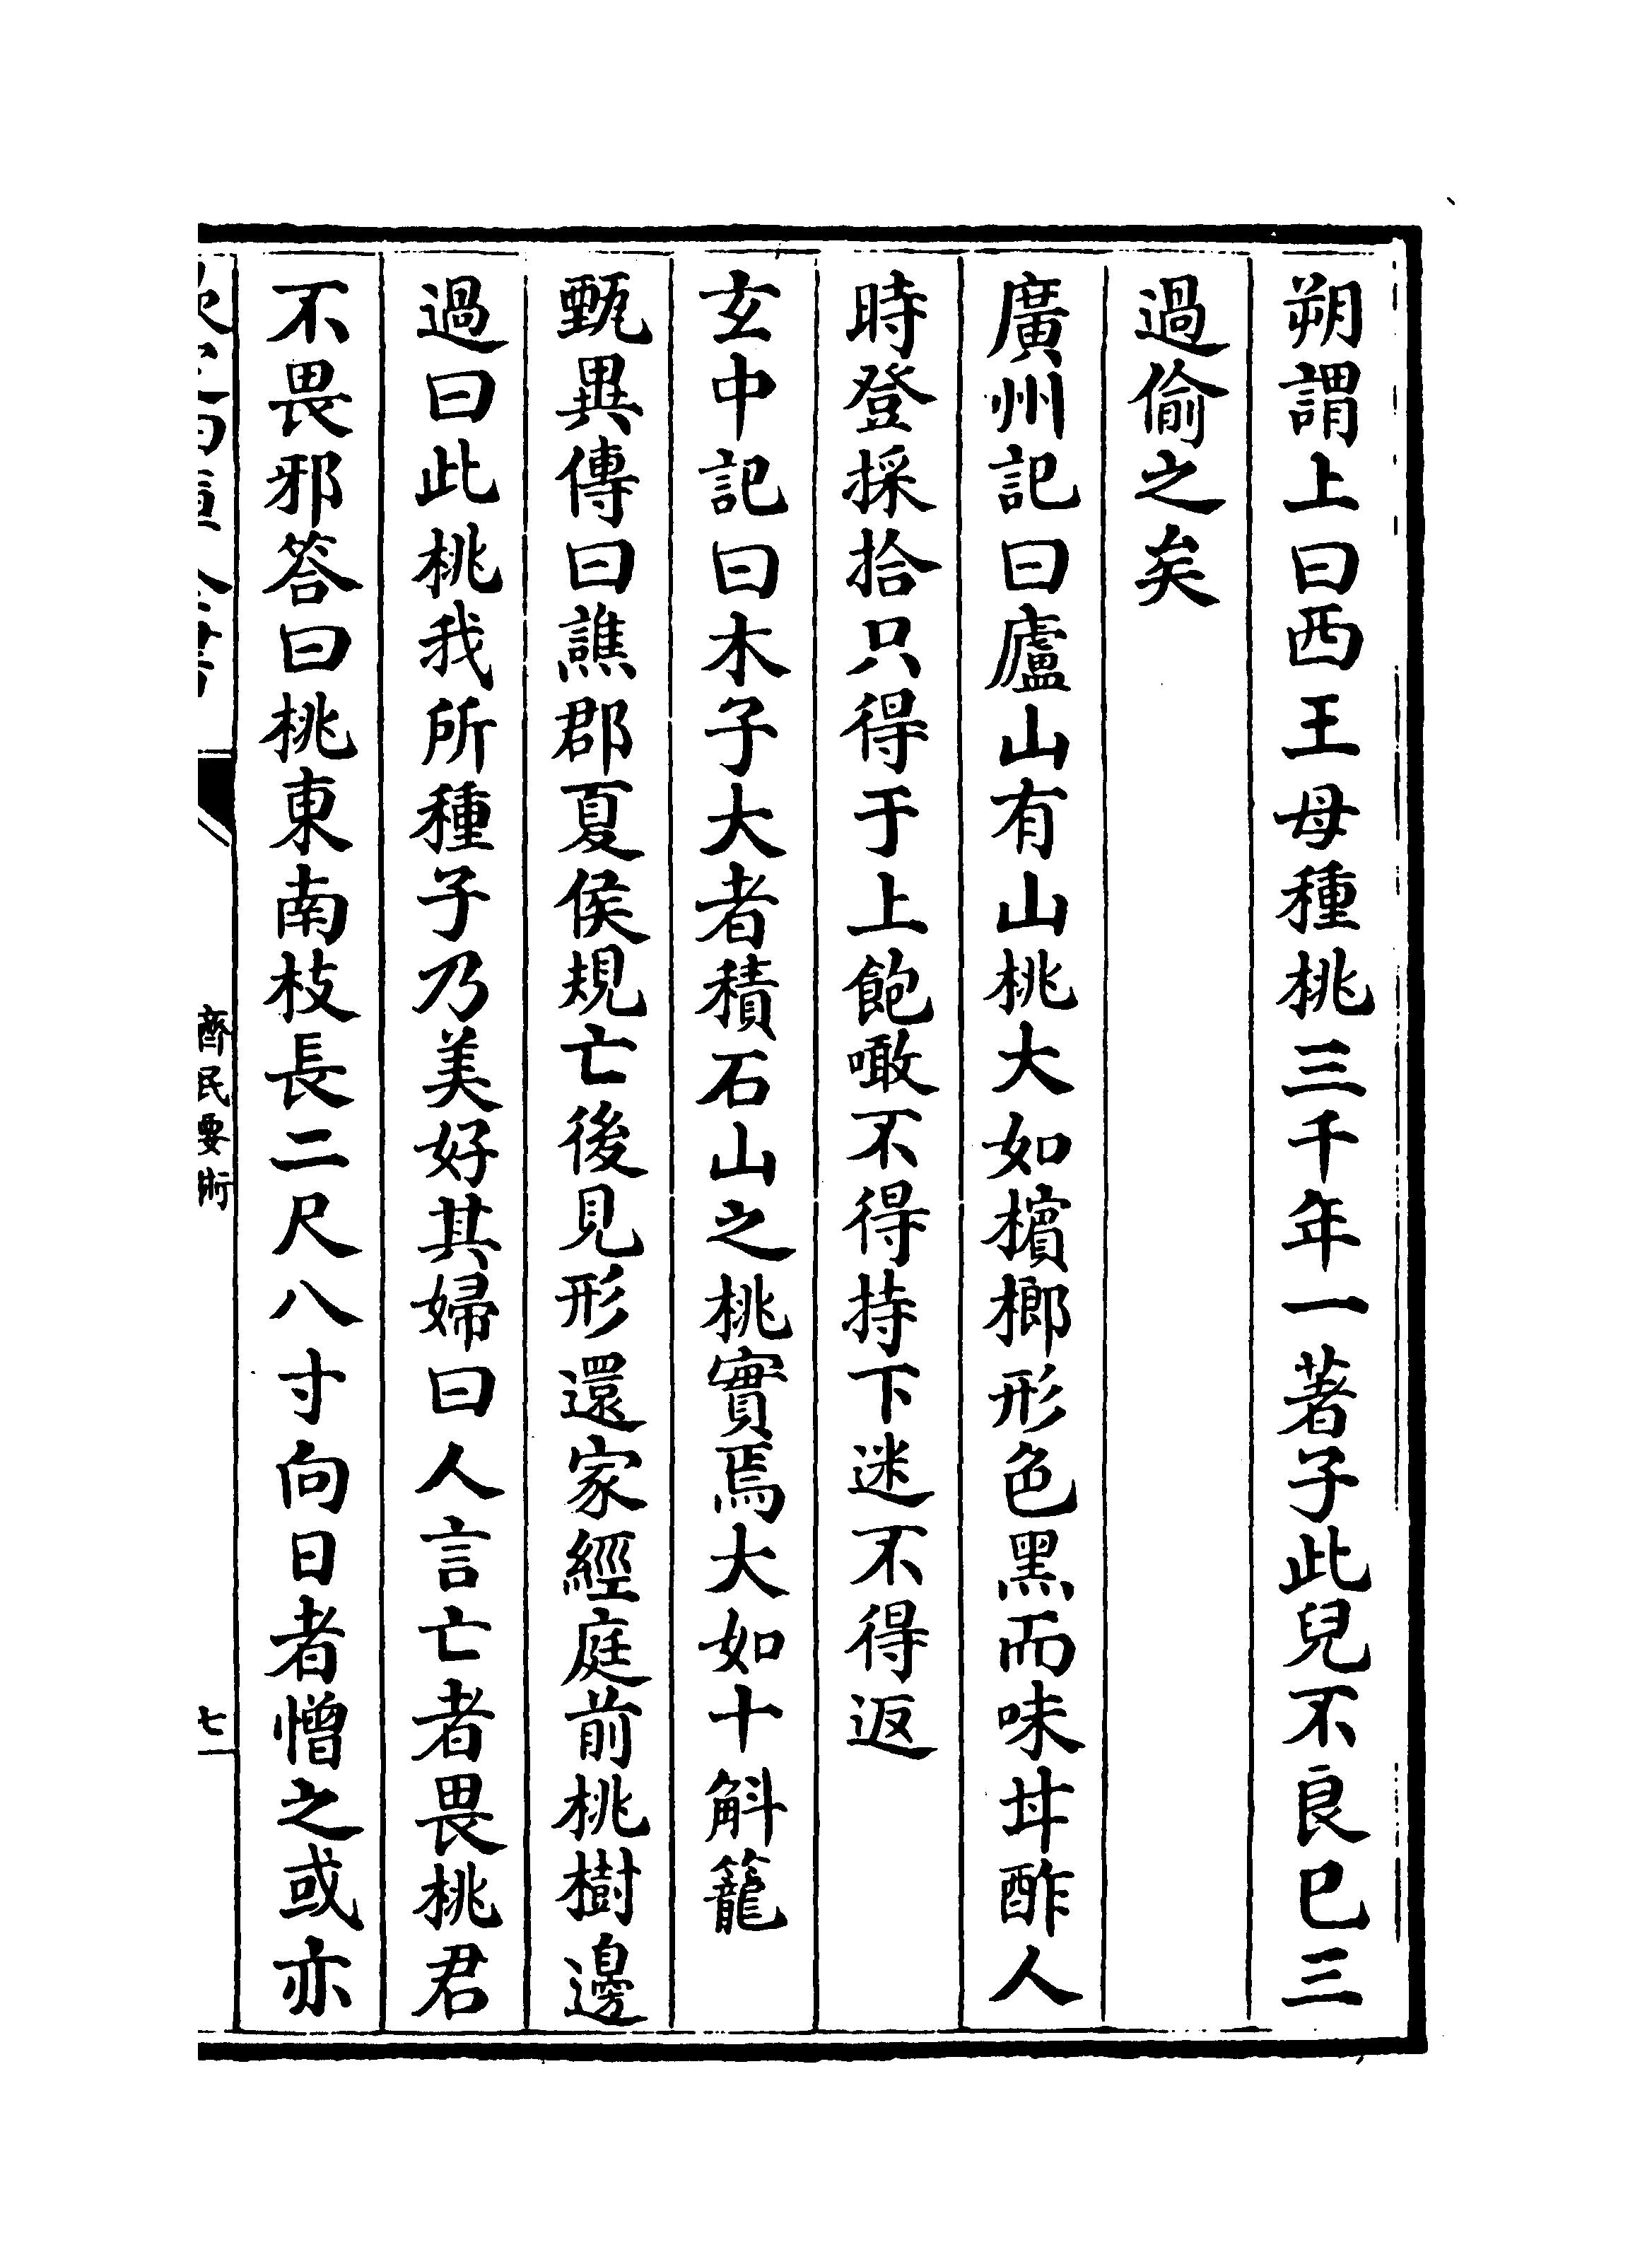 朔謂上曰西王母種桃三千年一著子此兒不良已三
過偷之矣
廣州記曰廬山有山桃大如檳榔形色黑而味甘酢人
時登採拾只得于上飽噉不得持下迷不得返
玄中記曰木子大者積石山之桃實焉大如十斛籠
甄異傳曰譙郡夏侯規亡後見形還家經庭前桃樹邊
過曰此桃我所種子乃美好其婦曰人言亡者畏桃君
不畏邪答曰桃東南枝長二尺八寸向日者憎之或亦
齊民要術
七